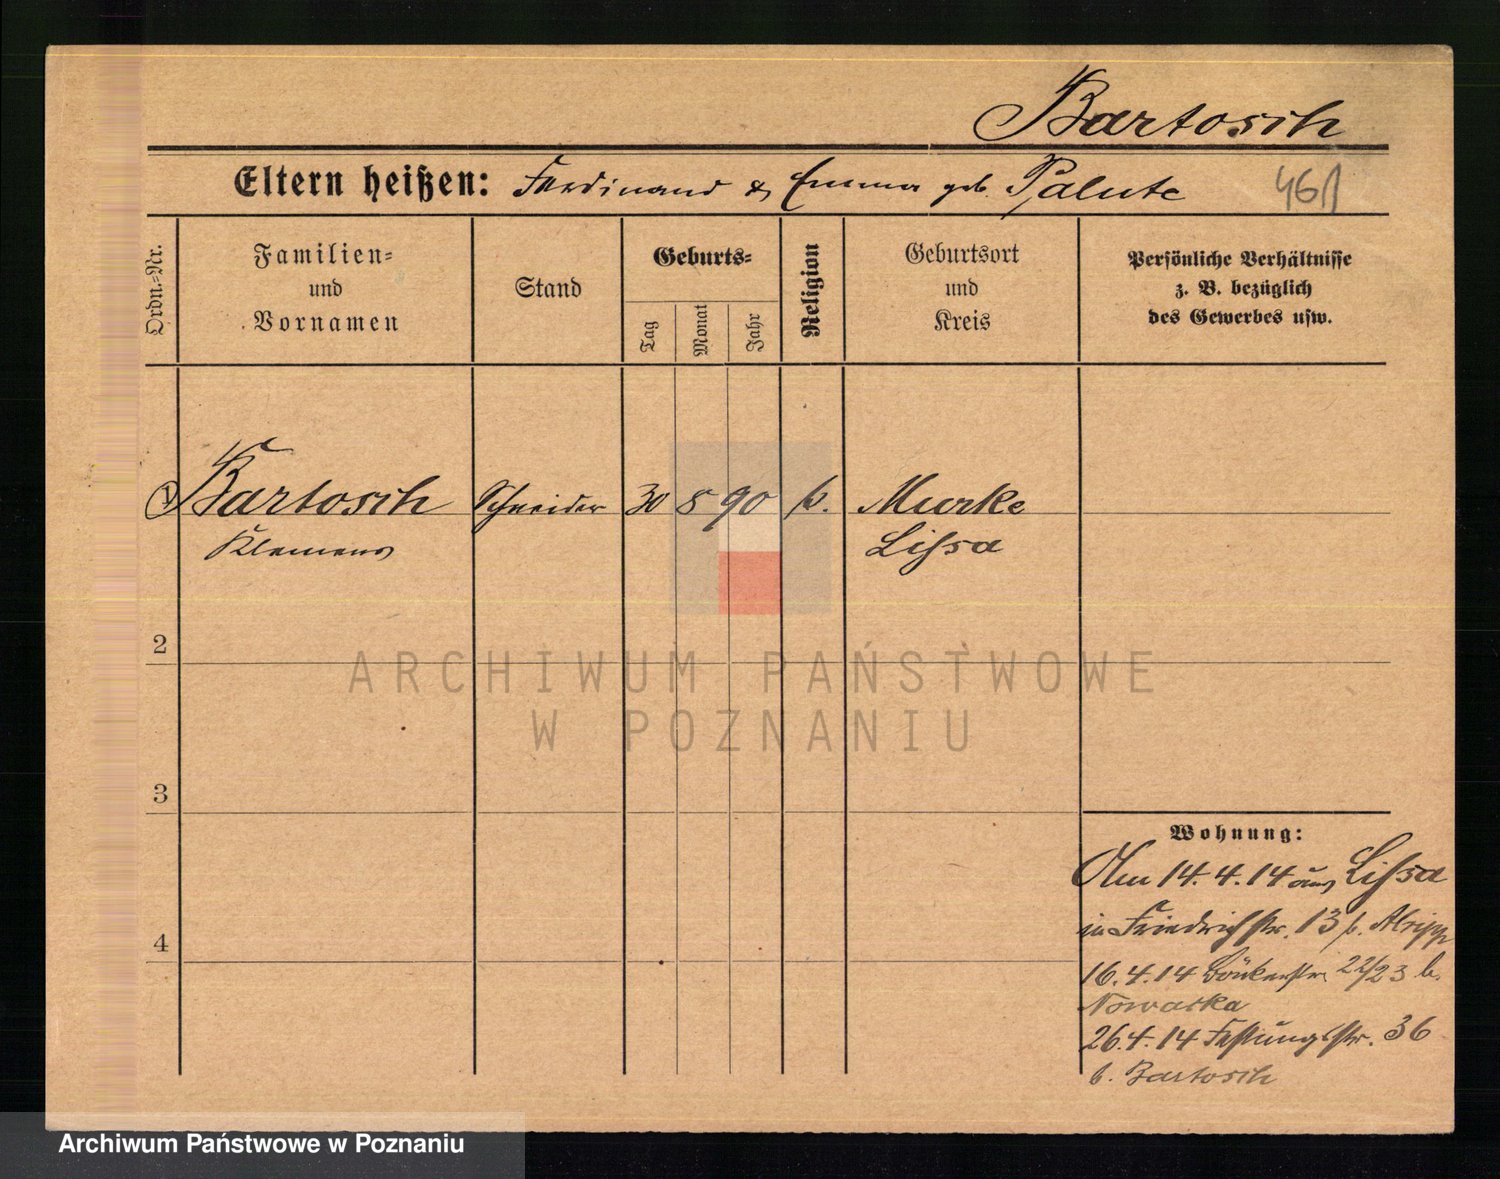 Bartosch
Eltern heißen: Ferdinand & Emma geb. Palute
461
Ordn.=Nr.
Familien=
und
Vornamen
Stand
Geburts=
Tag
Monat
Jahr
Religion
Geburtsort
und
Kreis
Persönliche Verhältnisse
z. B. bezüglich
des Gewerbes usw.
1 Bartosch Schneider 30 8 90 k. Murke
Klemens Lissa
2
ARCHIWUM PAŃSTWOWE
W POZNANIU
3
Wohnung:
Am 14.4.14 aus Lissa
in Friedrichstr. 13 b.
4
16.4.14 Bäckerstr. 22/23 b.
Nowacka
26.4.14 Festungsstr. 36
b. Bartosch
Archiwum Państwowe w Poznaniu